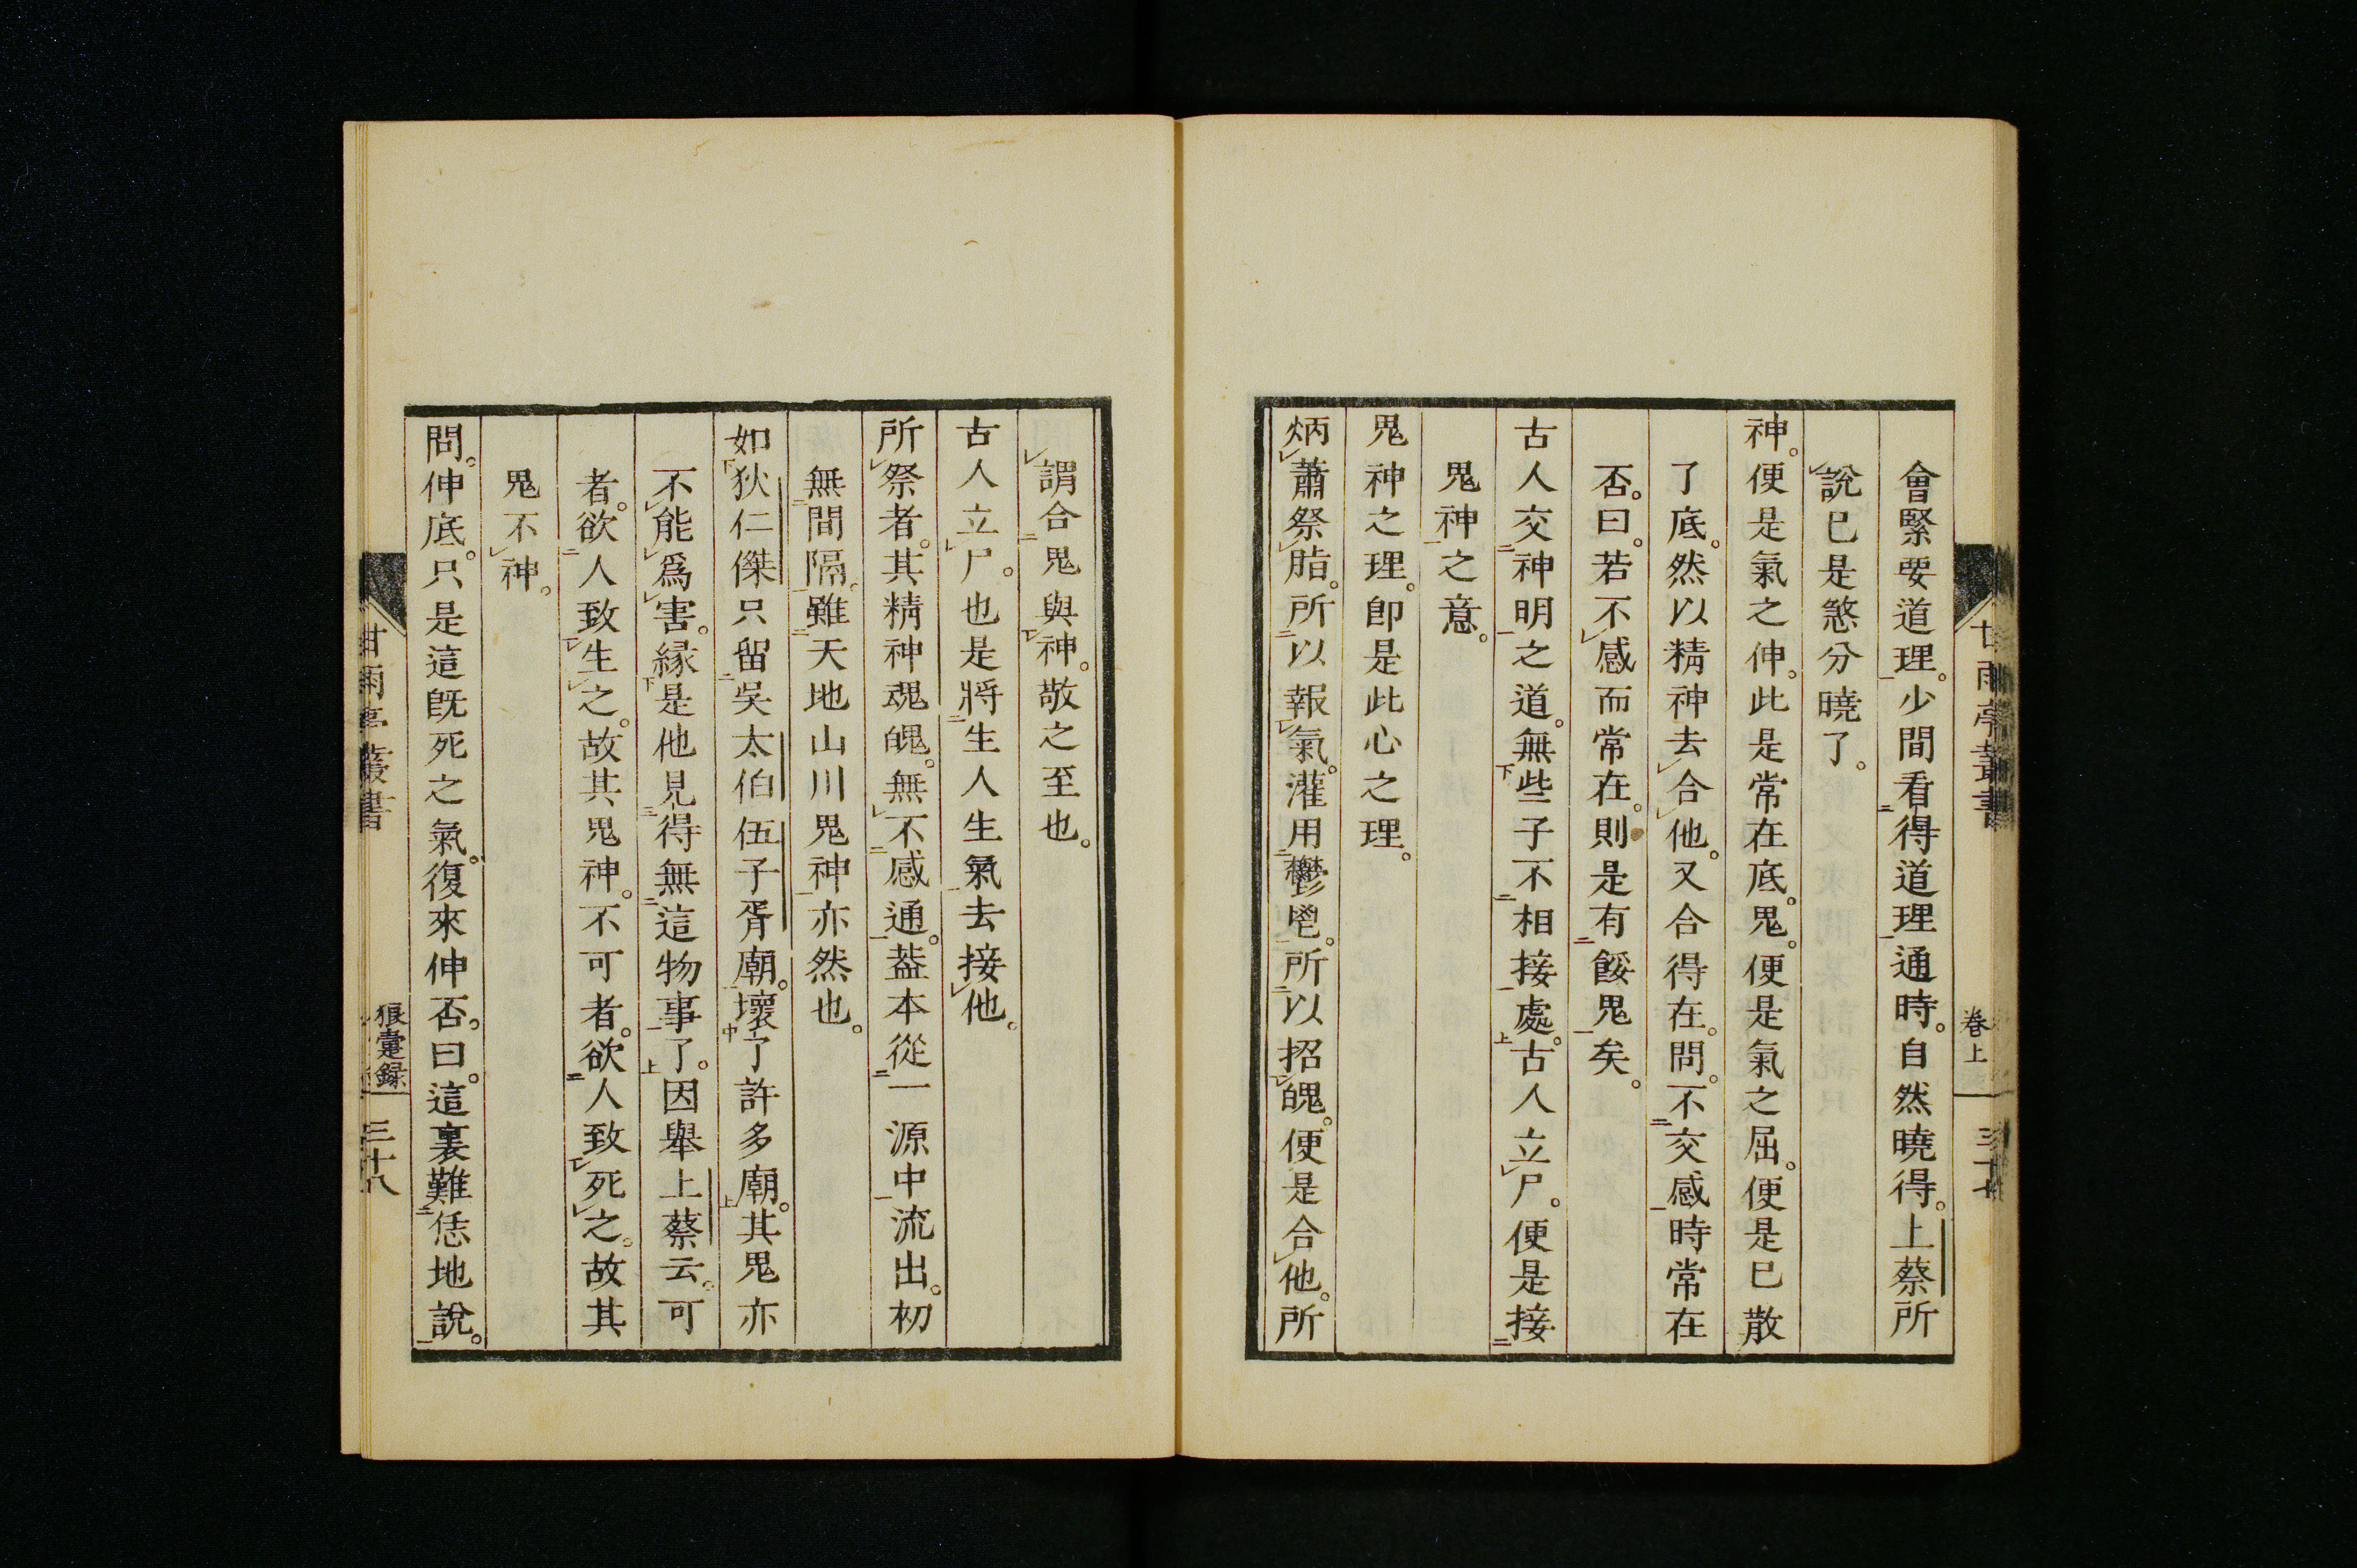 會緊要道理。少間看得道理通時。自然曉得。上蔡所
說已是煞分曉了。
神。便是氣之伸。此是常在底。鬼。便是氣之屈。便是已散
了底。然以精神去合他。又合得在。問。不交感時常在
否。曰。若不感而常在。則是有餒鬼矣。
古人交神明之道。無些子不相接處。古人立尸。便是接
鬼神之意。
鬼神之理。卽是此心之理。
焫蕭祭脂。所以報氣。灌用鬱鬯。所以招魄。便是合他。所
謂合鬼與神。敬之至也。
古人立尸。也是將生人生氣去接他。
所祭者。其精神魂魄。無不感通。葢本從一源中流出。初
無間隔。雖天地山川鬼神亦然也。
如狄仁傑只留吳太伯伍子胥廟。壞了許多廟。其鬼亦
不能爲害。緣是他見得無這物事了。因舉上蔡云。可
者。欲人致生之。故其鬼神。不可者。欲人致死之。故其
鬼不神。
問。伸底。只是這旣死之氣。復來伸否。曰。這裏難恁地說。
甘雨亭叢書
卷上
三十七
甘雨亭叢書
狼疐錄
三十八